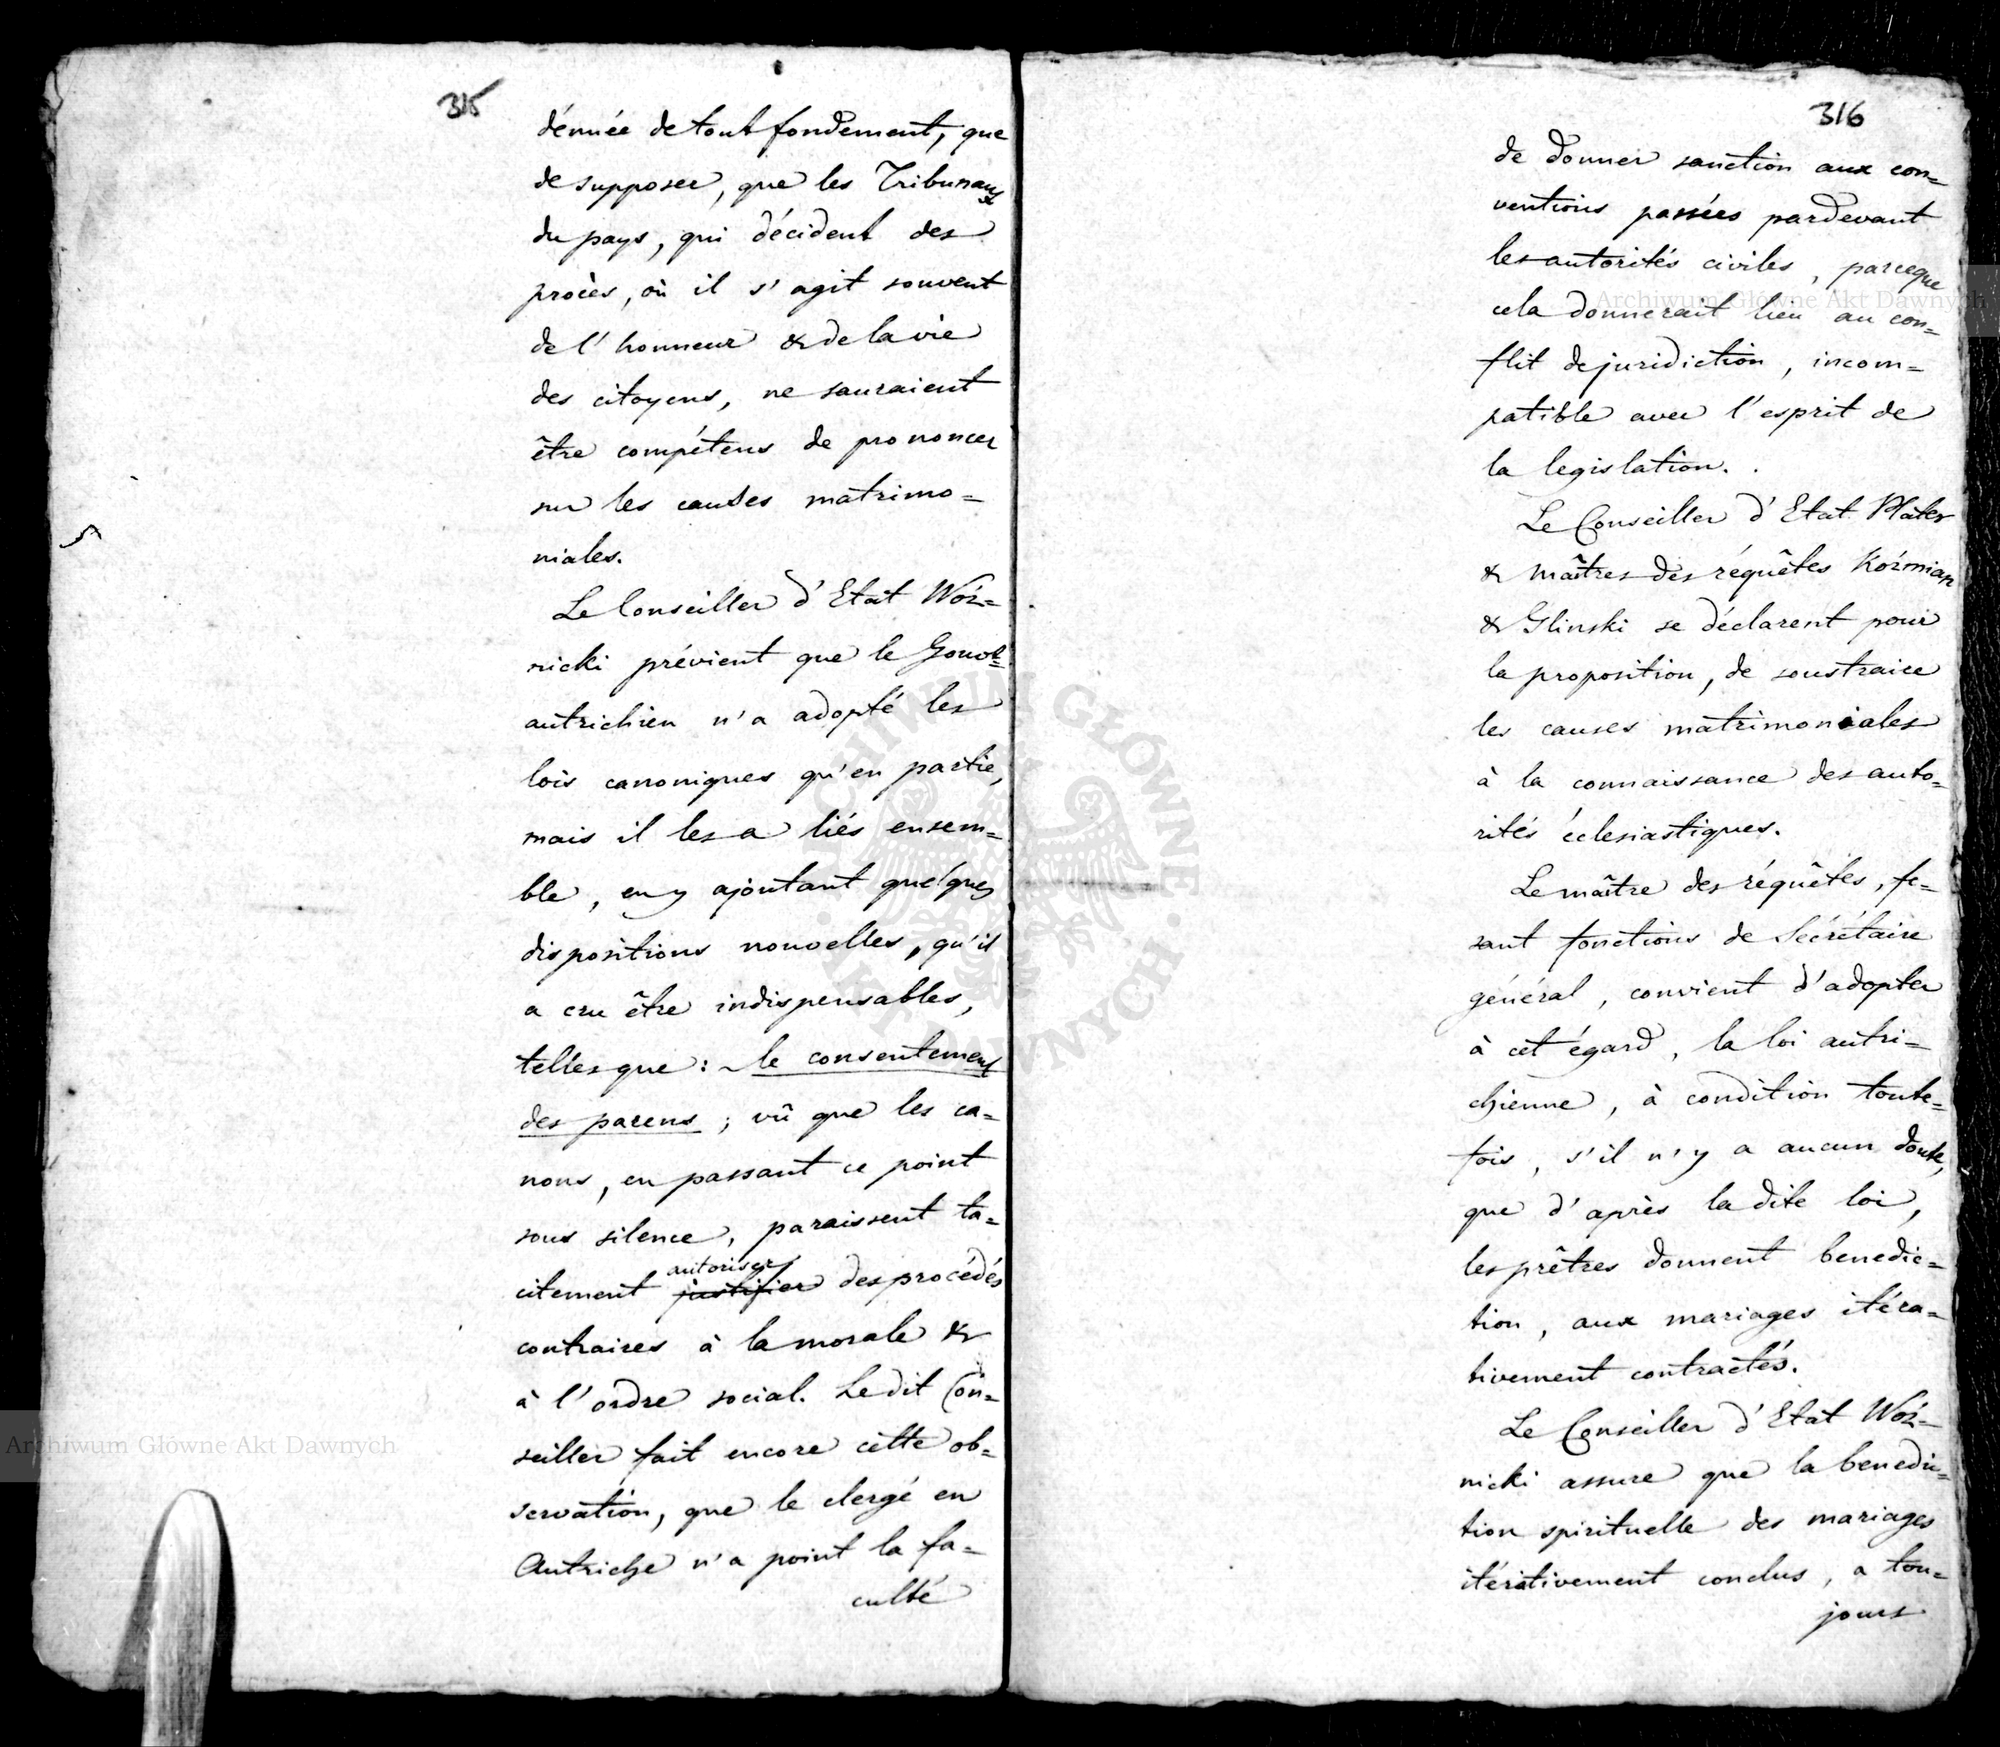 315
dénuée de tout fondement, que
de supposer, que les Tribunaux
du pays, qui décident des
procès, où il s'agit souvent
de l'honneur & de la vie
des citoyens, ne sauraient
être compétens de prononcer
sur les causes matrimo=
niales.
Le Conseiller d'Etat Woź=
nicki prévient que le Gouvt
autrichien n'a adopté les
lois canoniques qu'en partie,
mais il les a liés ensem=
ble, en y ajoutant quelques
dispositions nouvelles, qu'il
a cru être indispensables,
telles que: le consentement
des parens; vû que les ca=
nons, en passant ce point
sous silence, paraissent ta=
autoriser
citement justifier des procédés
contraires à la morale &
à l'ordre social. Le dit Con=
seiller fait encore cette ob=
servation, que le clergé en
Autriche n'a point la fa=
culté
316
de donner sanction aux con=
ventions passées pardevant
les autorités civiles, parceque
cela donnerait lieu au con=
flit de juridiction, incom=
patible avec l'esprit de
la legislation.
Le Conseiller d'Etat Plater
& maîtres des réquêtes Koźmian
& Glinski se déclarent pour
la proposition, de soustraire
les causes matrimoniales
à la connaissance des auto=
rités éclesiastiques.
Le maître des réquêtes, fe=
sant fonctions de Sécrétaire
général, convient d'adopter
à cet égard, la loi autri=
chienne, à condition toute=
fois, s'il n'y a aucun doute,
que d'après la dite loi,
les prêtres donnent benedic=
tion, aux mariages itéra=
tivement contractés.
Le Conseiller d'Etat Woź=
nicki assure que la benedic=
tion spirituelle des mariages
itérativement conclus, a tou=
jours
Archiwum Główne Akt Dawnych
Archiwum Główne Akt Dawnych
ARCHIWUM GŁÓWNE AKT DAWNYCH